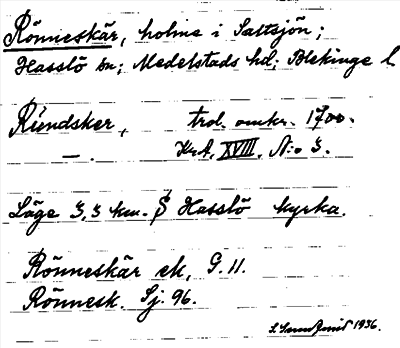 Rönneskär, holme i Saltsjön;
Hasslö sn; Medelstads hd; Blekinge l
Rúndsker, trol. omkr. 1700.
— . Kr.A. XVIII. N:o 3.
Läge 3,3 km. S Hasslö kyrka.
Rönneskär ek, G. 11.
Rönnesk. Sj. 96.
1936.